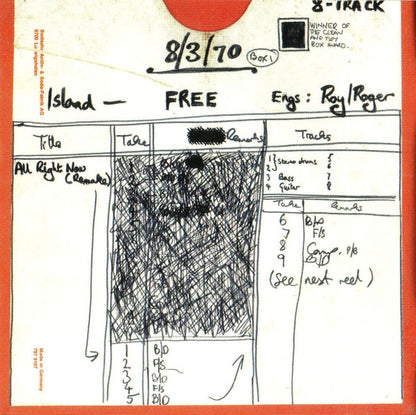 8-TRACK
WINNER OF
THE CLEAN
AND TIDY
BOX AWARD.
8/3/70 BOX 1
Island — FREE Engs: Roy/Roger
Title Take Remarks Tracks
All Right Now
(Remake)
1 } stereo drums 5
2 } 6
3 Bass 7
4 Guitar 8
Take Remarks
6 B/D
7 F/S
8 Comp. P/B
9
(See next reel)
1 B/D
2 F/S
3 B/D
4 F/S
5 B/D
Made in Germany